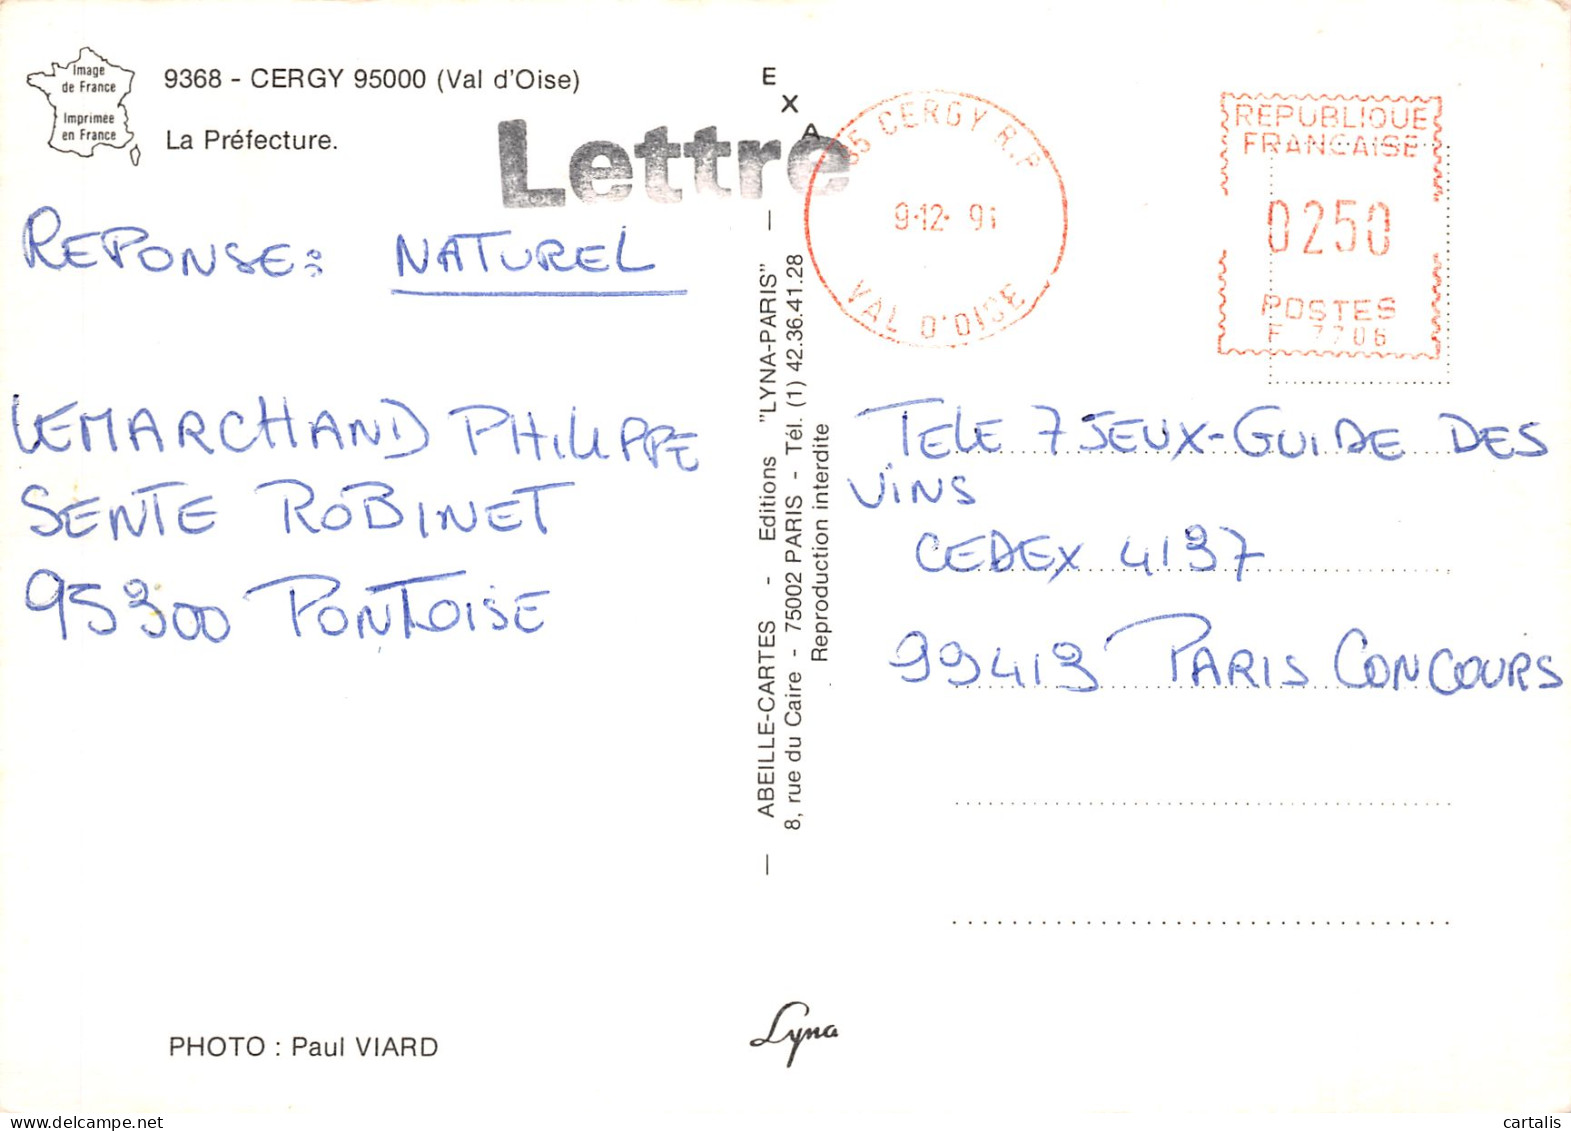 Image
de France
Imprimée
en France
9368 - CERGY 95000 (Val d'Oise)
La Préfecture.
Lettre
REPONSE: NATUREL
LEMARCHAND PHILIPPE
SENTE ROBINET
95300 PONTOISE
PHOTO : Paul VIARD
EXA
— ABEILLE-CARTES - Editions "LYNA-PARIS" —
8, rue du Caire - 75002 PARIS - Tél. (1) 42.36.41.28
Reproduction interdite
Lyna
95 CERGY R.P
9-12- 91
VAL D'OISE
REPUBLIQUE
FRANCAISE
0250
POSTES
F 7706
TELE 7 JEUX-GUIDE DES
VINS
CEDEX 4137
99419 PARIS CONCOURS
cartalis